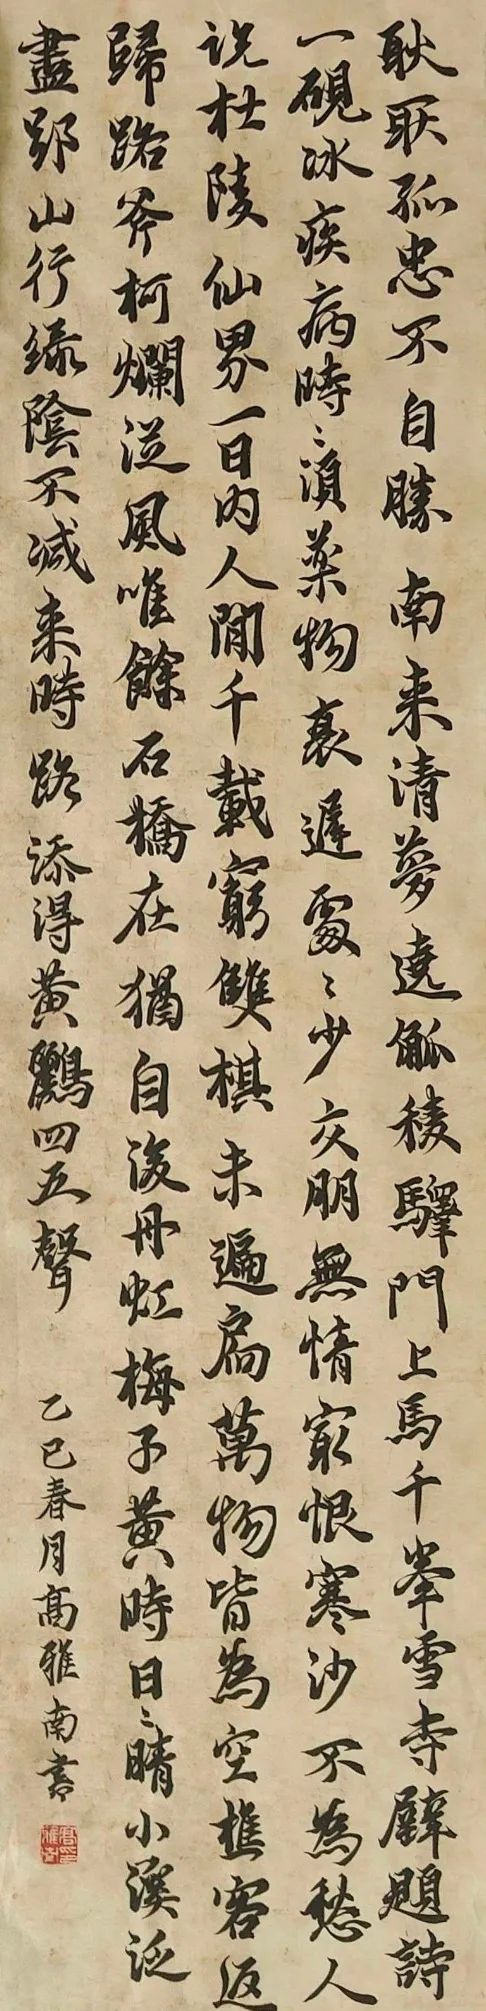 耿耿孤忠不自勝南来清夢遶觚稜驛門上馬千峯雪寺壁題詩
一硯冰疾病時〻須藥物衰遲處〻少交朋無情最恨寒沙不為愁人
说杜陵仙界一日内人間千載窮雙棋未遍局萬物皆為空樵客返
歸路斧柯爛從風唯餘石橋在猶自凌丹虹梅子黄時日〻晴小溪泛
盡郤山行綠陰不減来時路添得黄鸝四五聲
乙巳春月高雅南書